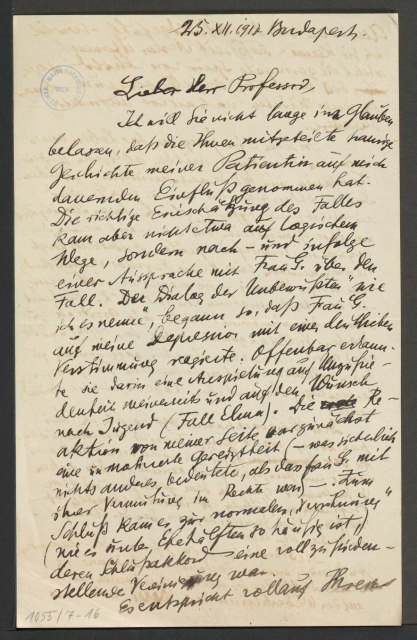 25. XII. 1912 Budapest.
Lieber Herr Professor,
Ich will Sie nicht lange im Glauben
belassen, daß die Ihnen mitgeteilte traurige
Geschichte meiner Patientin auf mich
dauernden Einfluß genommen hat.
Die richtige Einschätzung des Falles
kam aber nicht etwa auf logischem
Wege, sondern nach – und infolge
einer Aussprache mit Frau G. über den
Fall. Der „Dialog der Unbewußten" wie
ich es nenne, begann so, daß Frau G.
auf meine Depression mit einer deutlichen
Verstimmung reagirte. Offenbar erkann-
te sie darin eine Anspielung auf Unzufrie-
denheit meinerseits und auf den Wunsch
nach Jugend (Fall Elma). Die Re-
aktion von meiner Seite war zunächst
eine unmotivirte Gereiztheit (– was sicherlich
nichts anderes bedeutete, als das Frau G. mit
ihrer Vermutung im Rechte war) –. Zum
Schluß kam es zur normalen „Versöhnung"
(wie es unter Ehehälften so häufig ist,)
deren Schlußakkord eine vollzufrieden-
stellende Vereinigung war.
Es entspricht vollauf Ihrem
1055/7-16